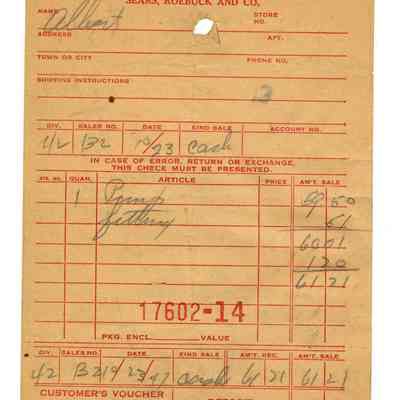 SEARS, ROEBUCK AND CO.
NAME Albert STORE NO.
ADDRESS APT.
TOWN OR CITY PHONE NO.
SHIPPING INSTRUCTIONS
DIV. SALES NO. DATE KIND SALE ACCOUNT NO.
42 B2 10/23 cash
IN CASE OF ERROR, RETURN OR EXCHANGE,
THIS CHECK MUST BE PRESENTED.
STK. NO. QUAN. ARTICLE PRICE AM'T. SALE
1 Pump 59 50
fitting 51
60 01
1 20
61 21
17602-14
PKG. ENCL. VALUE
DIV. SALES NO. DATE KIND SALE AM'T. REC. AM'T. SALE
42 B2 10/23/47 cash 61 21 61 21
CUSTOMER'S VOUCHER